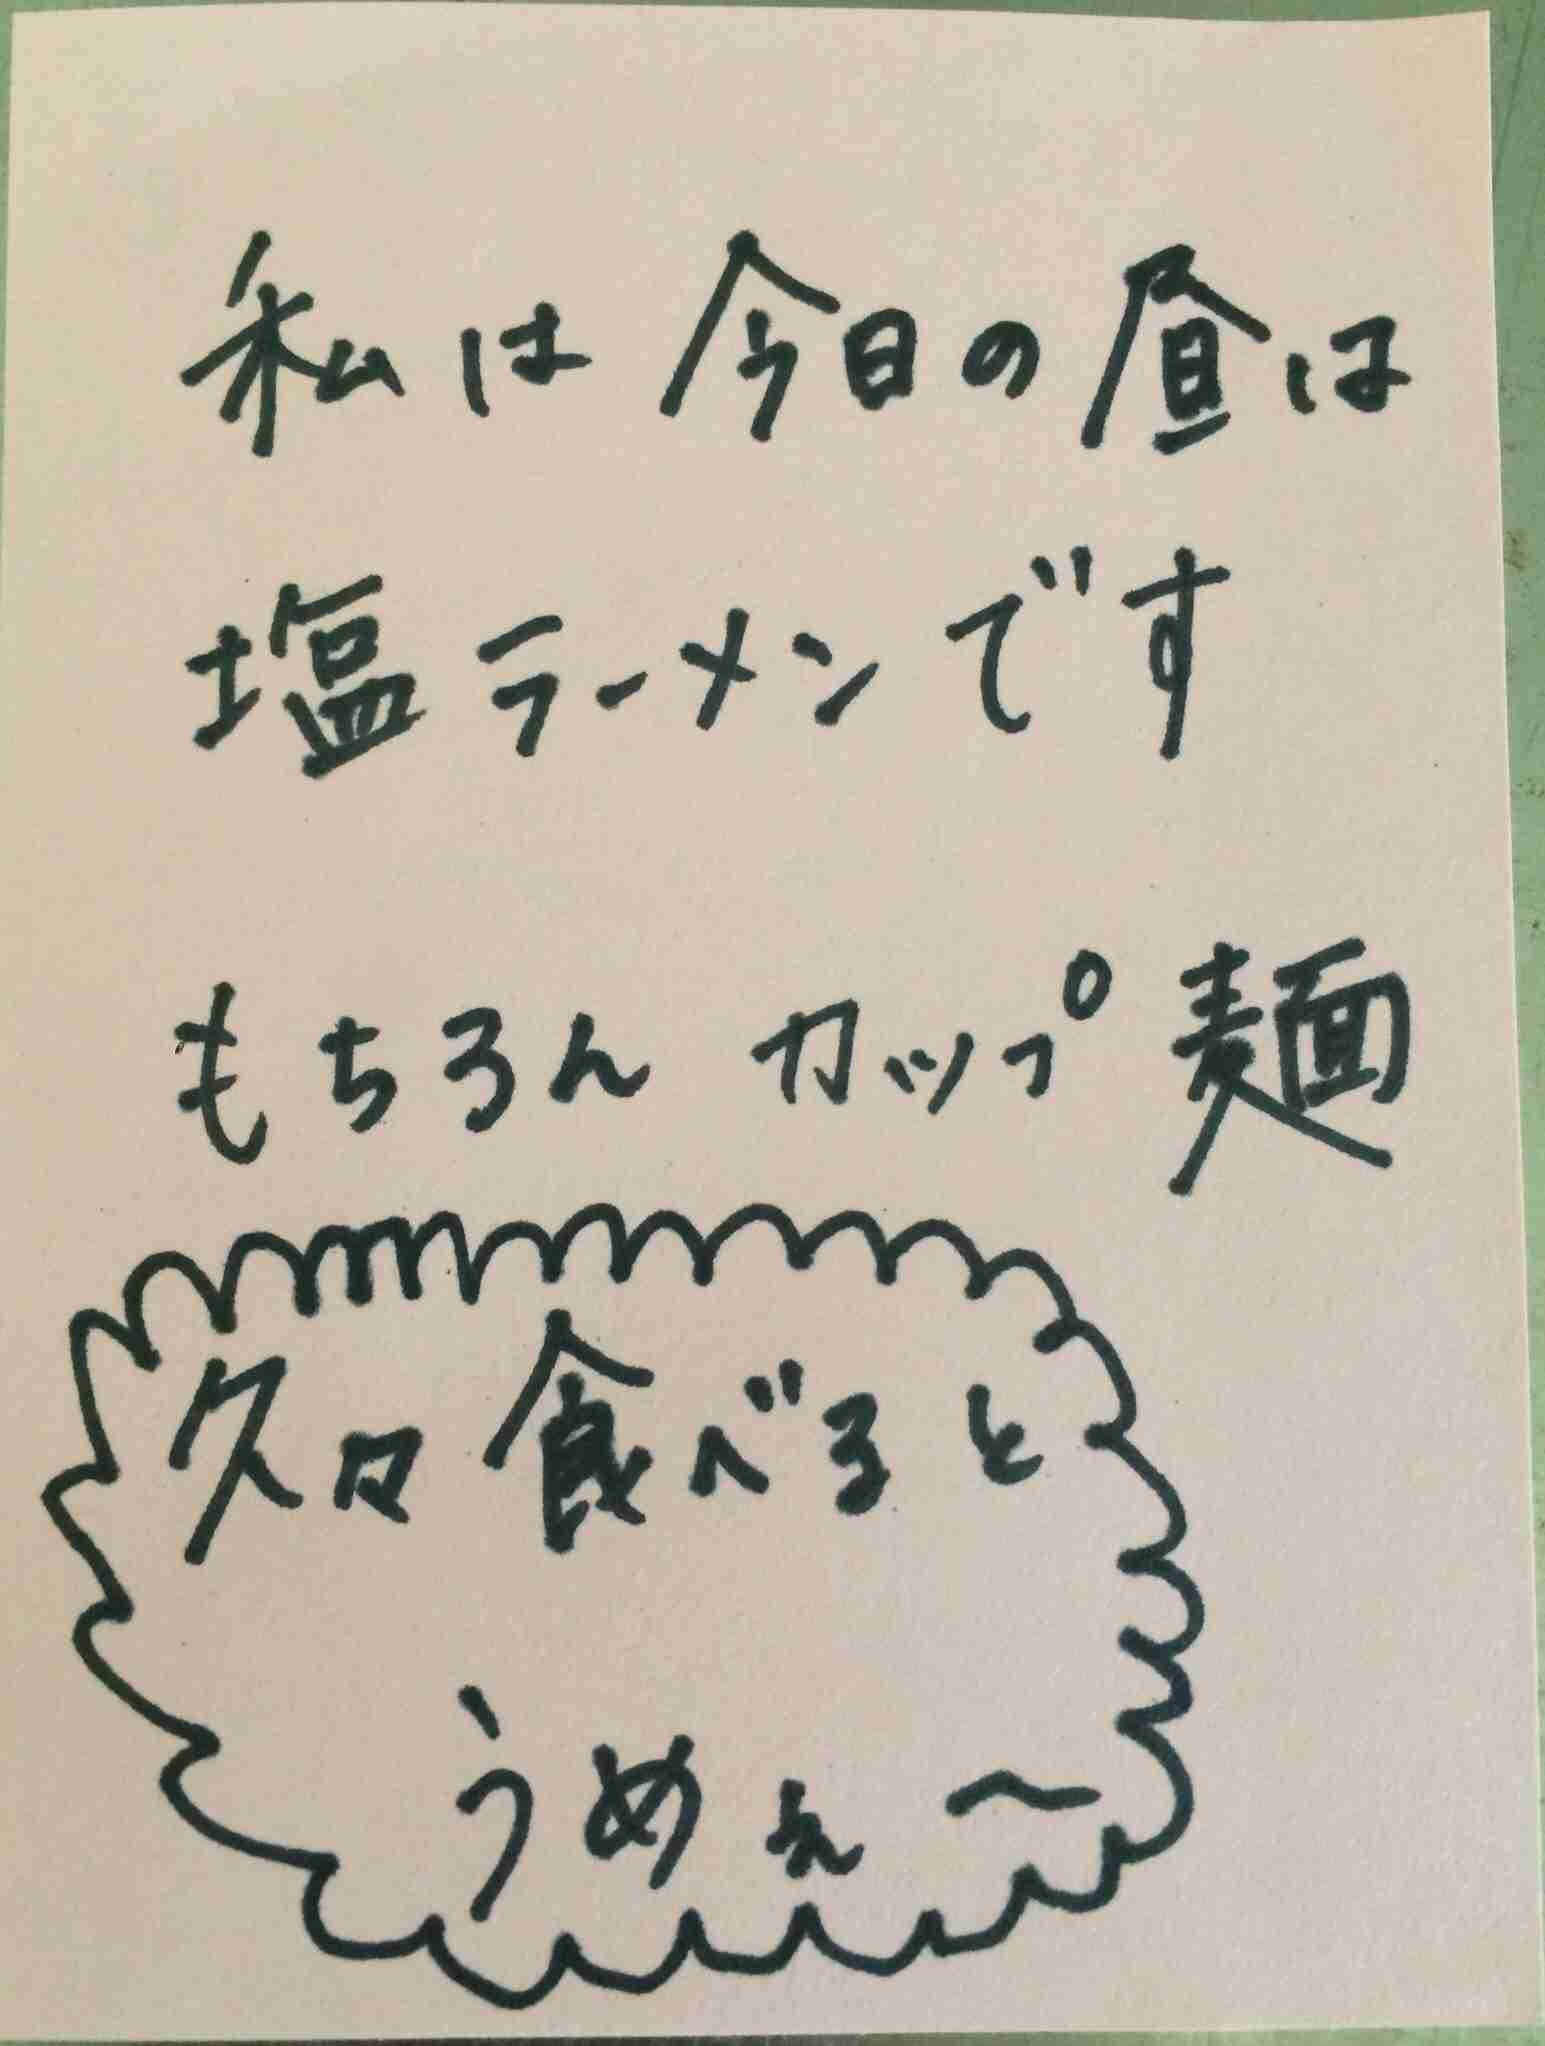 私は今日の昼は
塩ラーメンです
もちろんカップ麺
久々食べると
うめぇ〜